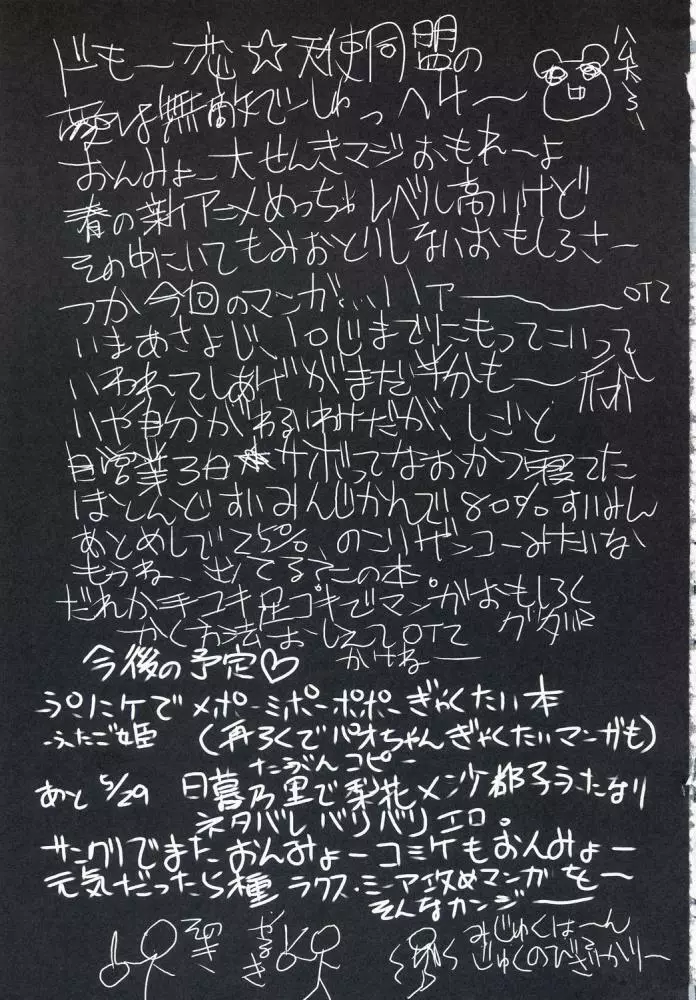 ドもー恋☆天使同盟の
愛は無敵でーしゅっヘケ〜
おんみょー大せんきマジおもれーよ
春の新アニメめっちゃレベル高いけど
その中にいてもみおとりしないおもしろさー
つか今回のマンガ…ハァー OTZ
いまあさよじ、10じまでにもってこいって
いわれてしあげがまだ半分も――
いや自分がわるいわけだが、しごと
自営業3日サボってなおかつ寝てた
ほとんどすいみんじかんで80%すいみん
あとめしで25% のこりザンコーみたいな
もうね、出てる?この本。
だれか手コキ足コキでマンガおもしろく
かく方法おしえてOTZ グダハ
かけねー
今後の予定♡
ぷにケでメポーミポーポポーぎゃくたい本
ふたご姫 (再ろくでパオちゃんぎゃくたいマンガも)
たぶんコピー
あと 5/29 日暮乃里で梨花メンツケ都子ふたなり
ネタバレバリバリエロ。
サングリでまたおんみょーコミケもおんみょー
元気だったら種 ラクス・ミーア攻めマンガを〜
そんなカンジ――
そのき
やるき
みじゅくはーん
じゅくのびざかりー